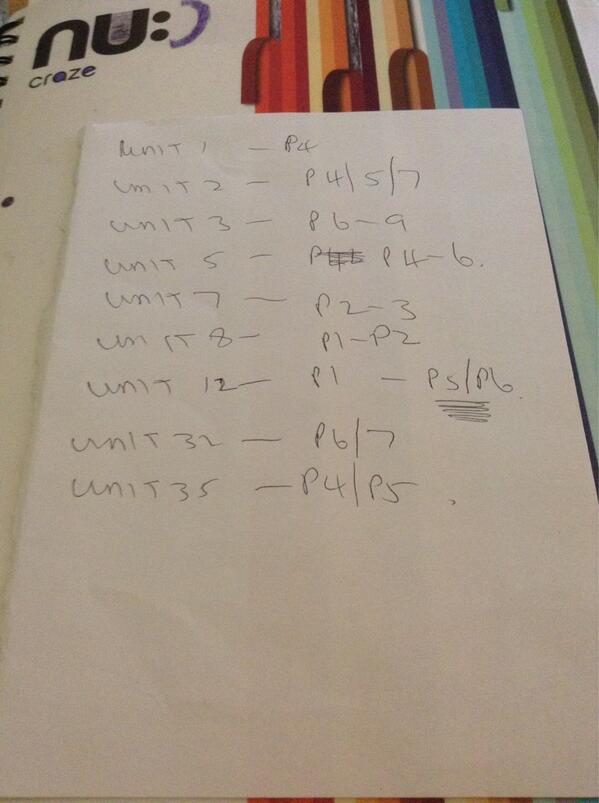 nu:)
craze
UNIT 1 - P4
UNIT 2 - P4/5/7
UNIT 3 - P6-9
UNIT 5 - P4-6.
UNIT 7 - P2-3
UNIT 8 - P1-P2
UNIT 12 - P1 - P5/P6.
UNIT 32 - P6/7
UNIT 35 - P4/P5.